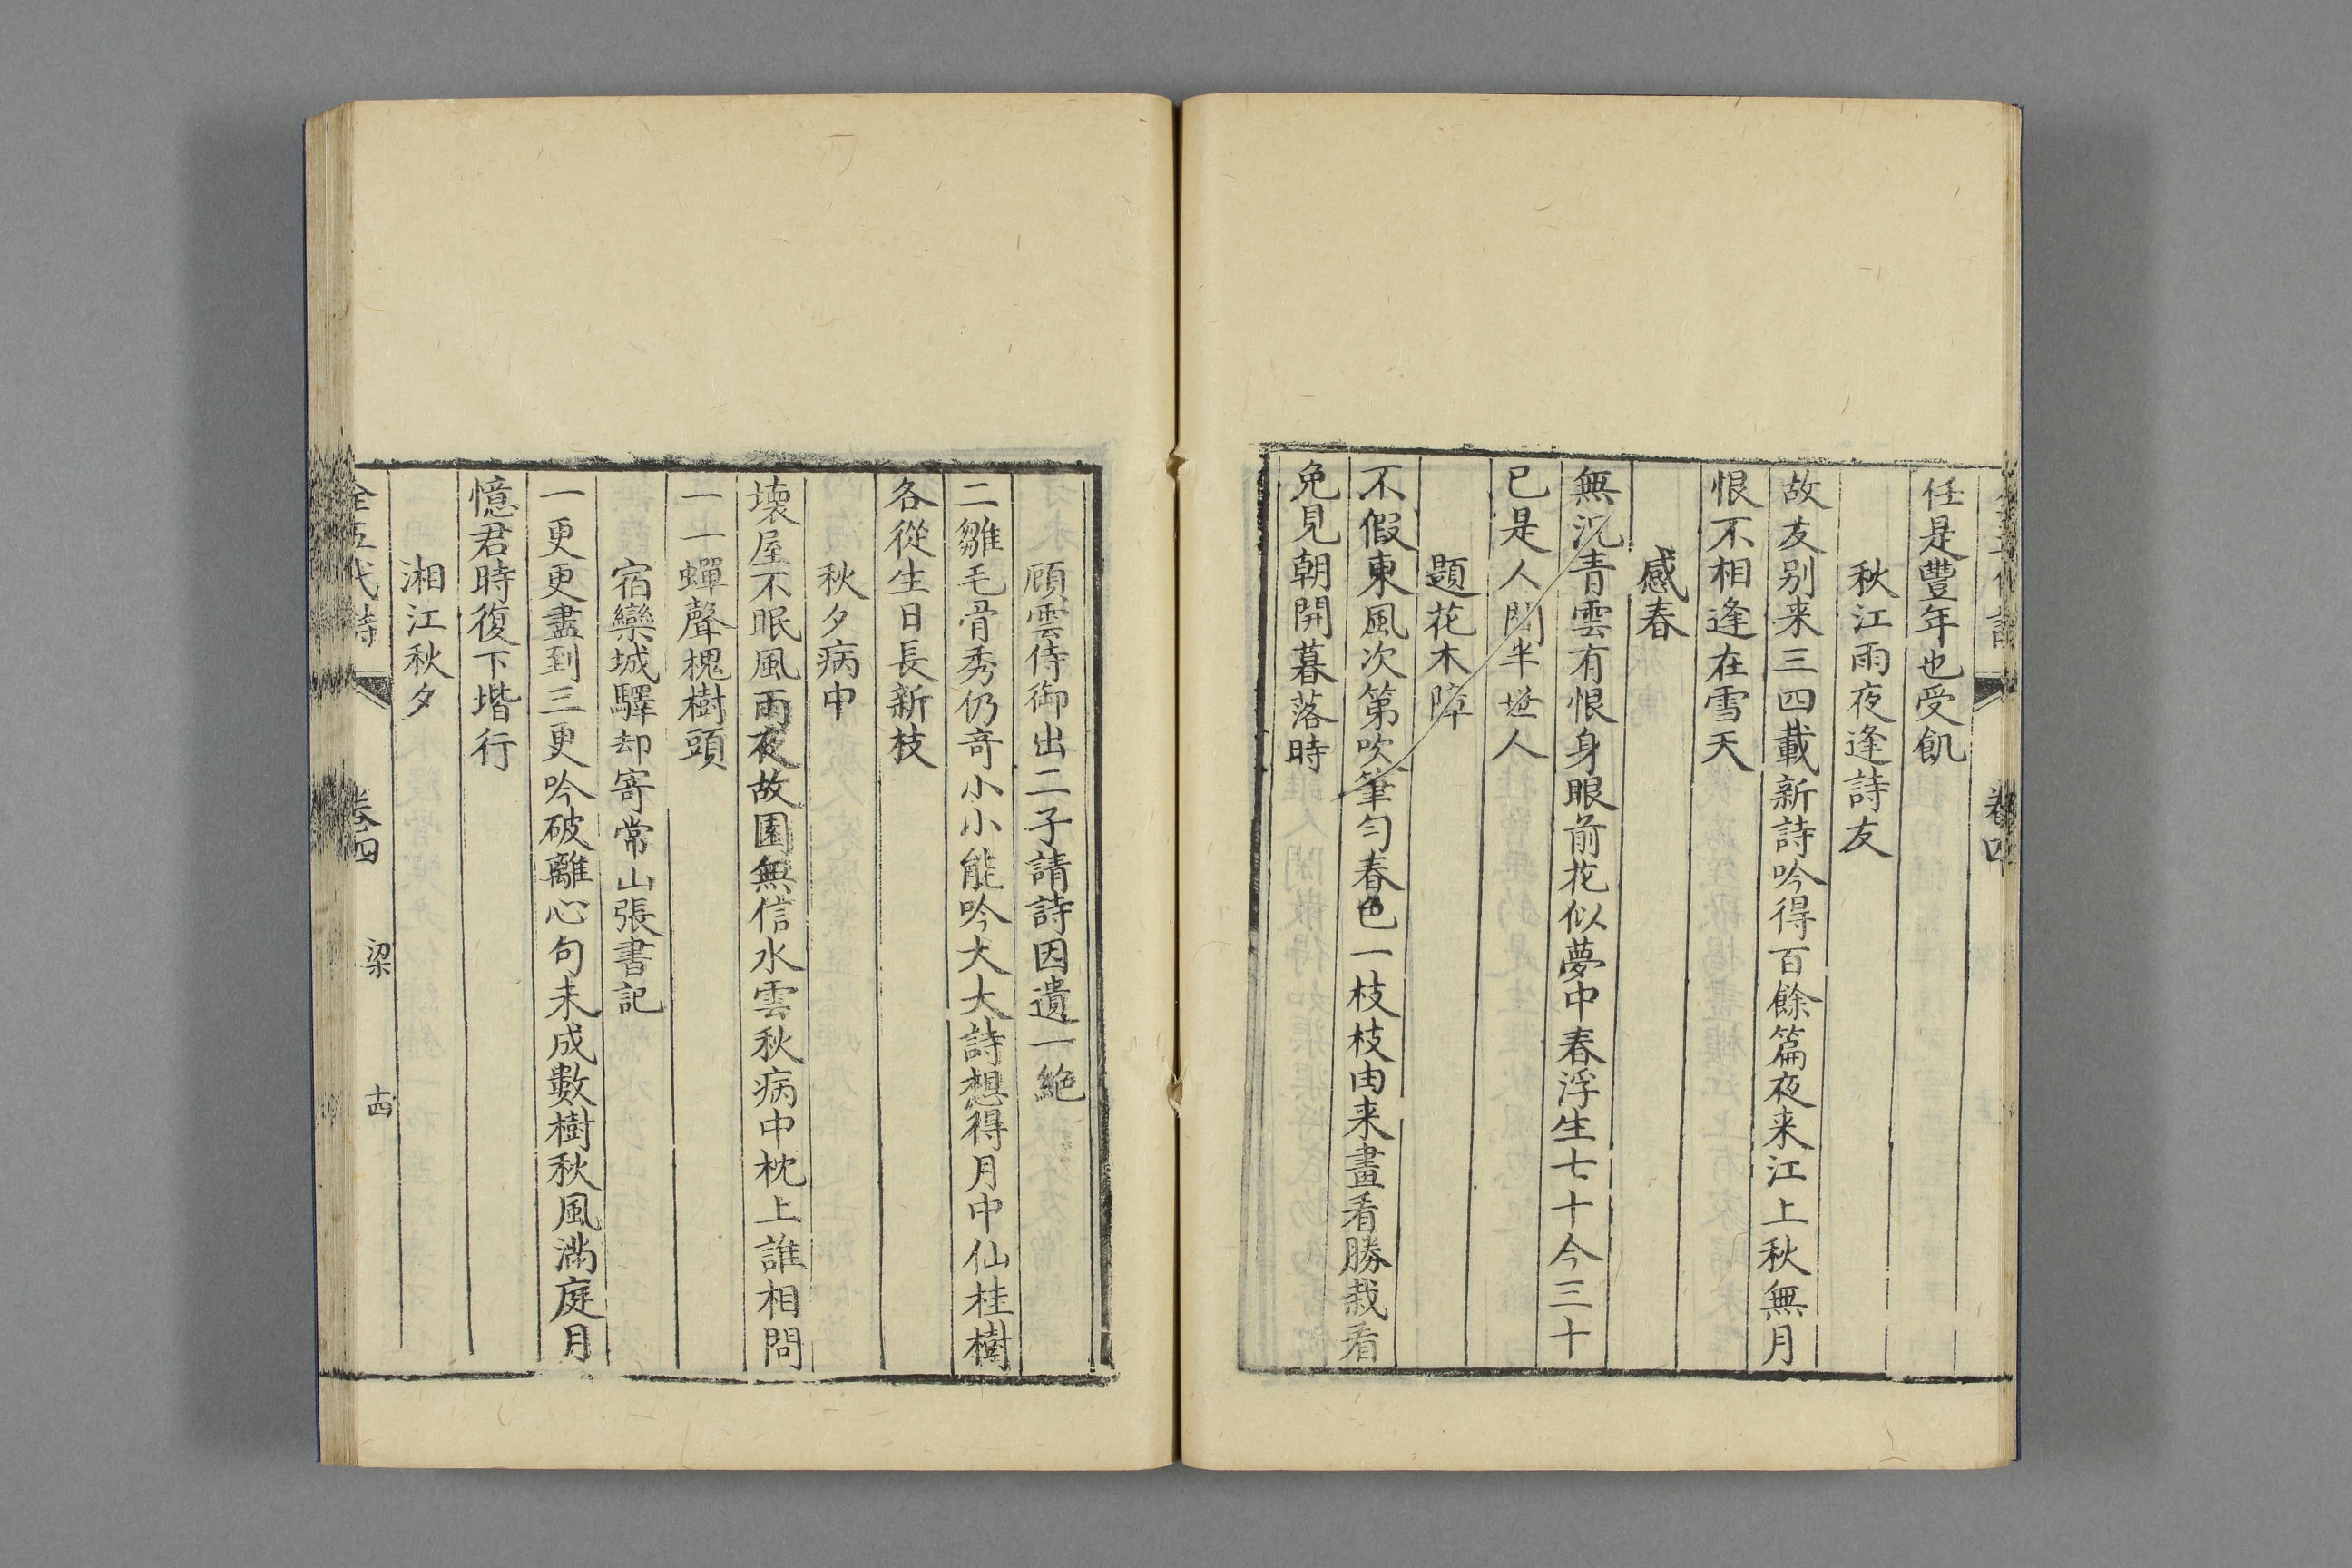 卷四
任是豐年也受飢
秋江雨夜逢詩友
故友别来三四載新詩吟得百餘篇夜来江上秋無月
恨不相逢在雪天
感春
無況青雲有恨身眼前花似夢中春浮生七十今三十
已是人間半世人
題花木障
不假東風次第吹筆勻春色一枝枝由来畫看勝栽看
免見朝開暮落時
顧雲侍御出二子請詩因遺一絶
二雛毛骨秀仍奇小小能吟大大詩想得月中仙桂樹
各從生日長新枝
秋夕病中
壊屋不眠風雨夜故園無信水雲秋病中枕上誰相問
一一蟬聲槐樹頭
宿欒城驛却寄常山張書記
一更更盡到三更吟破離心句未成數樹秋風滿庭月
憶君時復下堦行
湘江秋夕
全五代詩 卷四 梁 十四